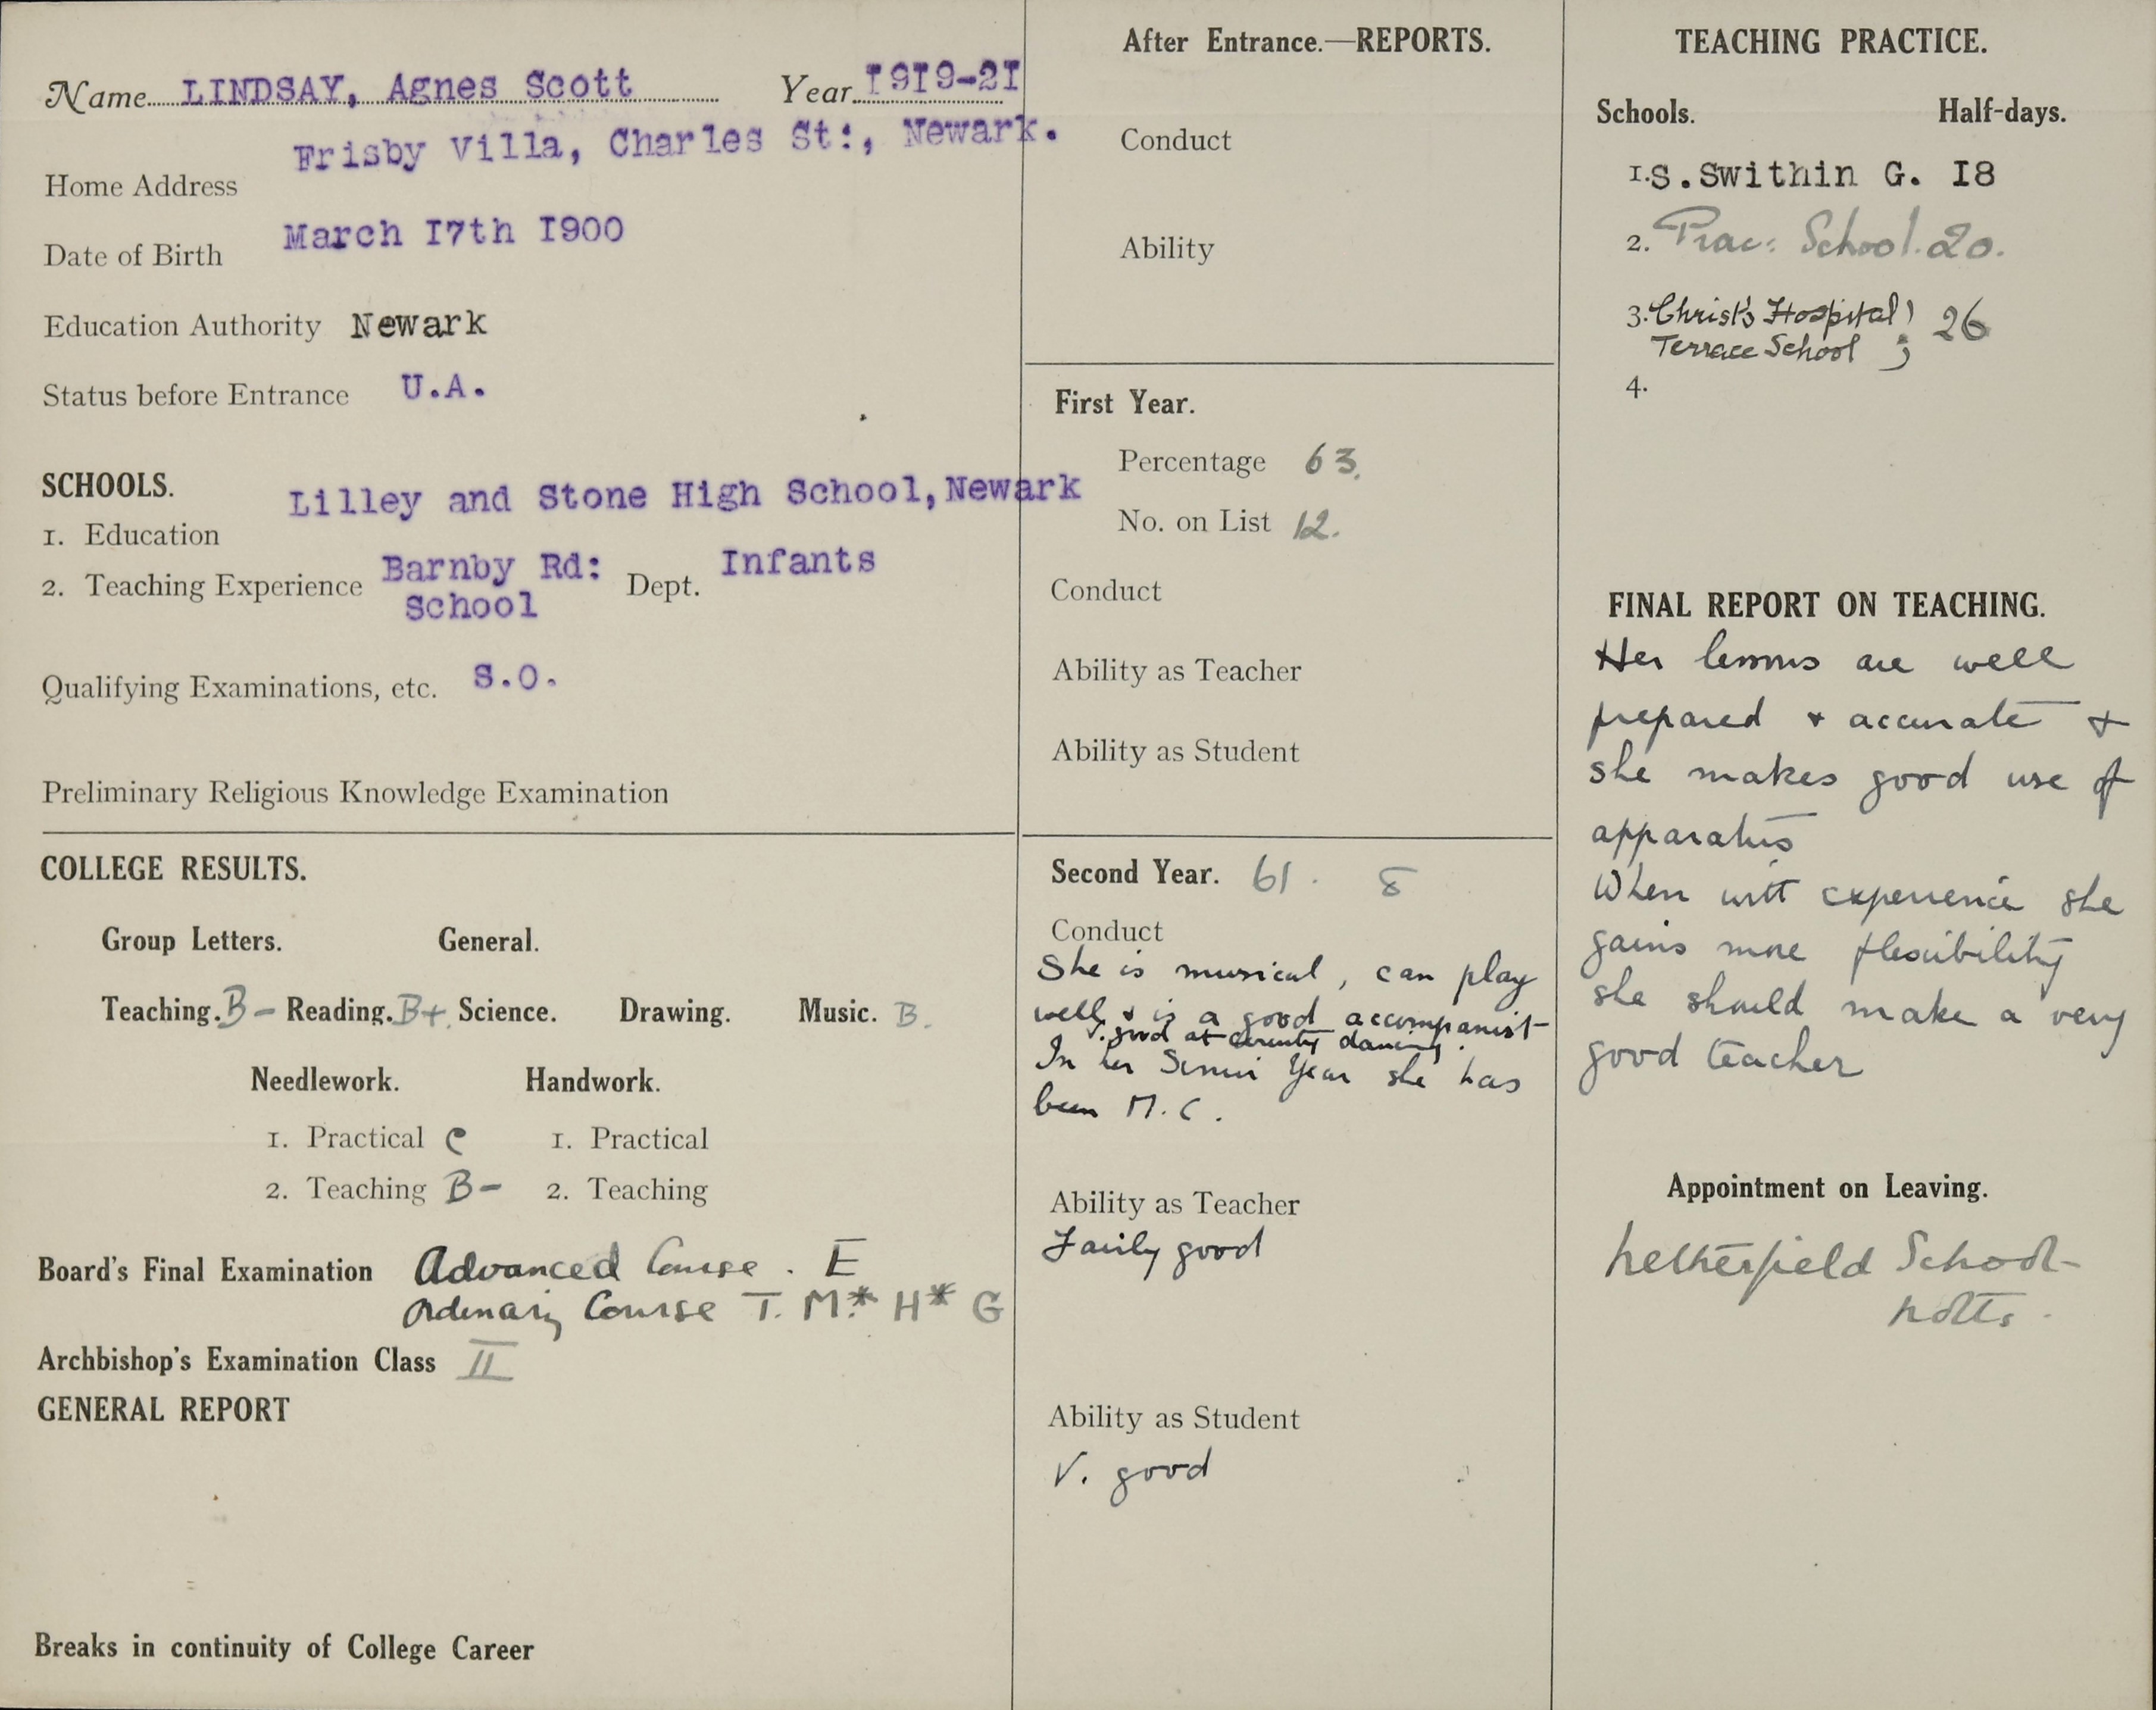 Name LINDSAY, Agnes Scott Year I9I9-2I
Frisby Villa, Charles St:, Newark.
Home Address
March I7th I900
Date of Birth
Education Authority Newark
Status before Entrance U.A.
SCHOOLS.
Lilley and Stone High School, Newark
1. Education
2. Teaching Experience Barnby Rd: Dept. Infants
School
Qualifying Examinations, etc. S.O.
Preliminary Religious Knowledge Examination
COLLEGE RESULTS.
Group Letters. General.
Teaching. B- Reading. B+. Science. Drawing. Music. B.
Needlework. Handwork.
1. Practical C 1. Practical
2. Teaching B- 2. Teaching
Board's Final Examination Advanced Course. E
Ordinary Course T. M.* H* G
Archbishop's Examination Class II
GENERAL REPORT
Breaks in continuity of College Career
After Entrance.—REPORTS.
Conduct
Ability
First Year.
Percentage 63.
No. on List 12.
Conduct
Ability as Teacher
Ability as Student
Second Year. 61. 8
Conduct
She is musical, can play
well & is a good accompanist
V. good at country dancing.
In her Senior Year she has
been M.C.
Ability as Teacher
Fairly good
Ability as Student
V. good
TEACHING PRACTICE.
Schools. Half-days.
1. S.Swithin G. I8
2. Prac: School. 20.
3. Christ's Hospital } 26
Terrace School
4.
FINAL REPORT ON TEACHING.
Her lessons are well
prepared & accurate &
she makes good use of
apparatus
When with experience she
gains more flexibility
she should make a very
good teacher
Appointment on Leaving.
Netherfield School
Notts.